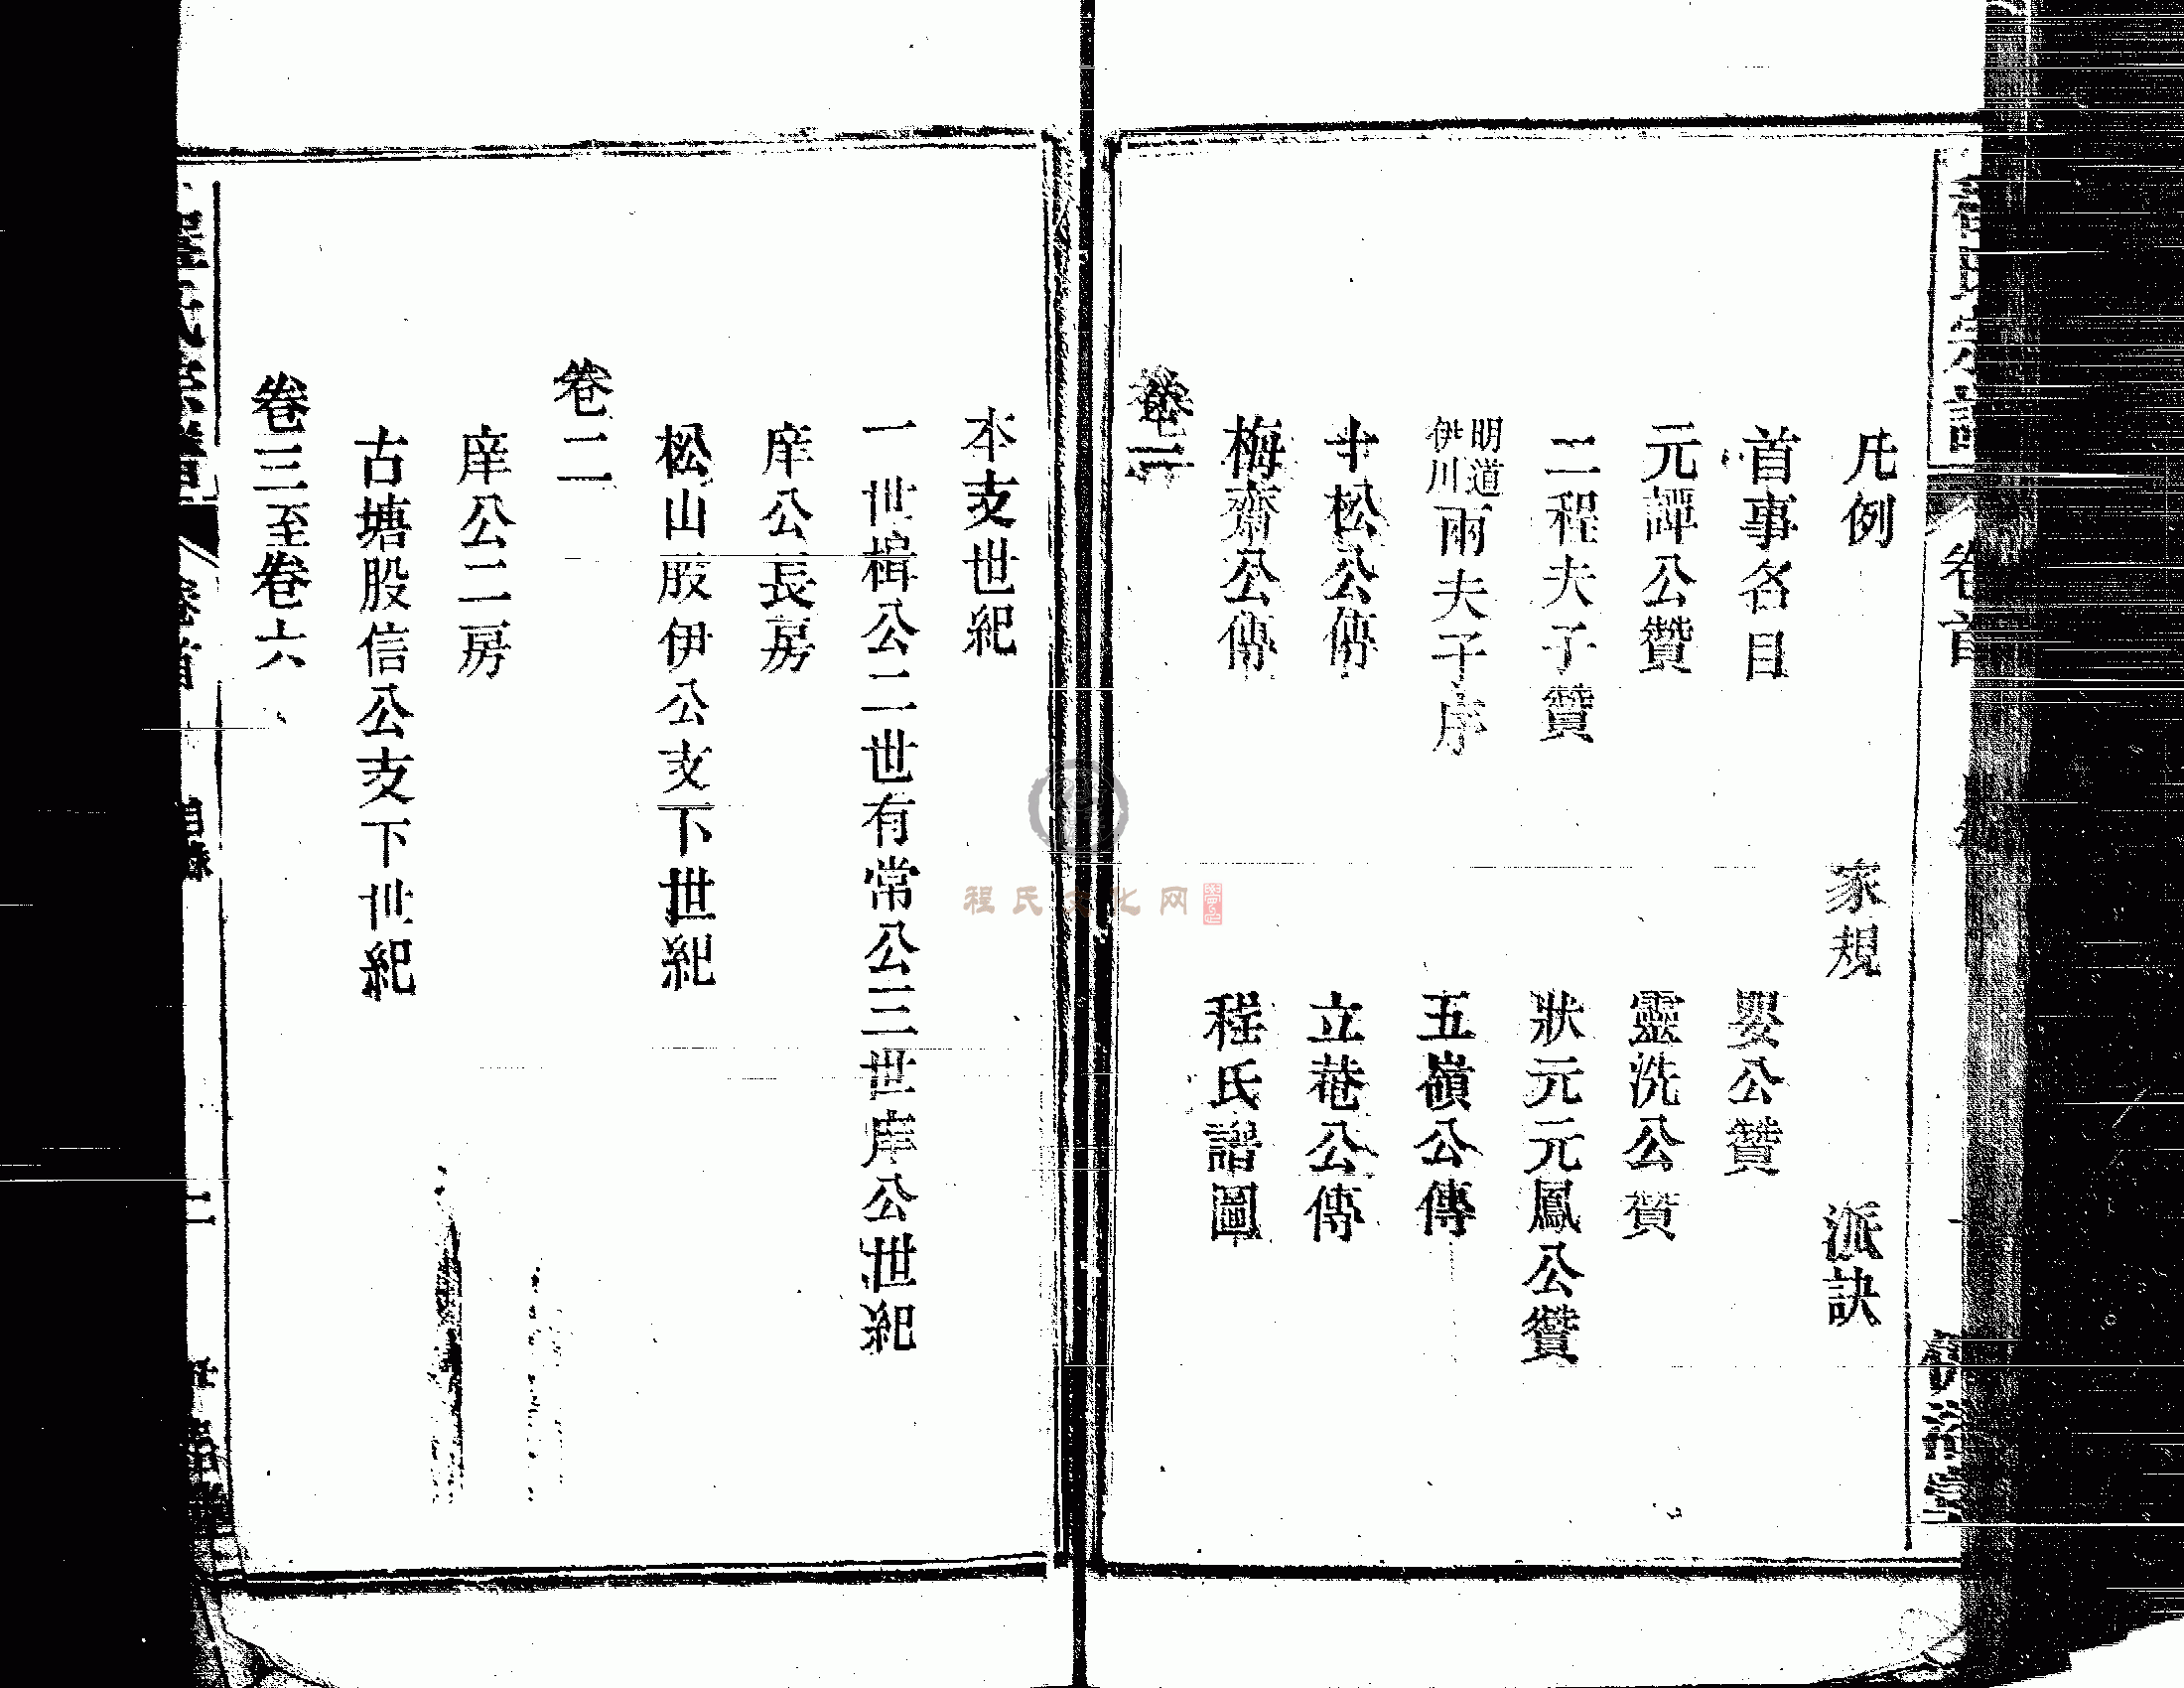 程氏宗譜 卷首
凡例 家規 派訣
首事名目 嬰公贊
元譚公贊 靈洗公贊
二程夫子贊 狀元元鳳公贊
明道伊川兩夫子序 五嶺公傳
十松公傳 立菴公傳
梅齋公傳 程氏譜圖
卷一
本支世紀
一世楫公二世有常公三世庠公世紀
庠公長房
松山股伊公支下世紀
卷二
庠公二房
古塘股信公支下世紀
卷三至卷六
程氏宗譜 卷首 目錄 二
程氏文化网